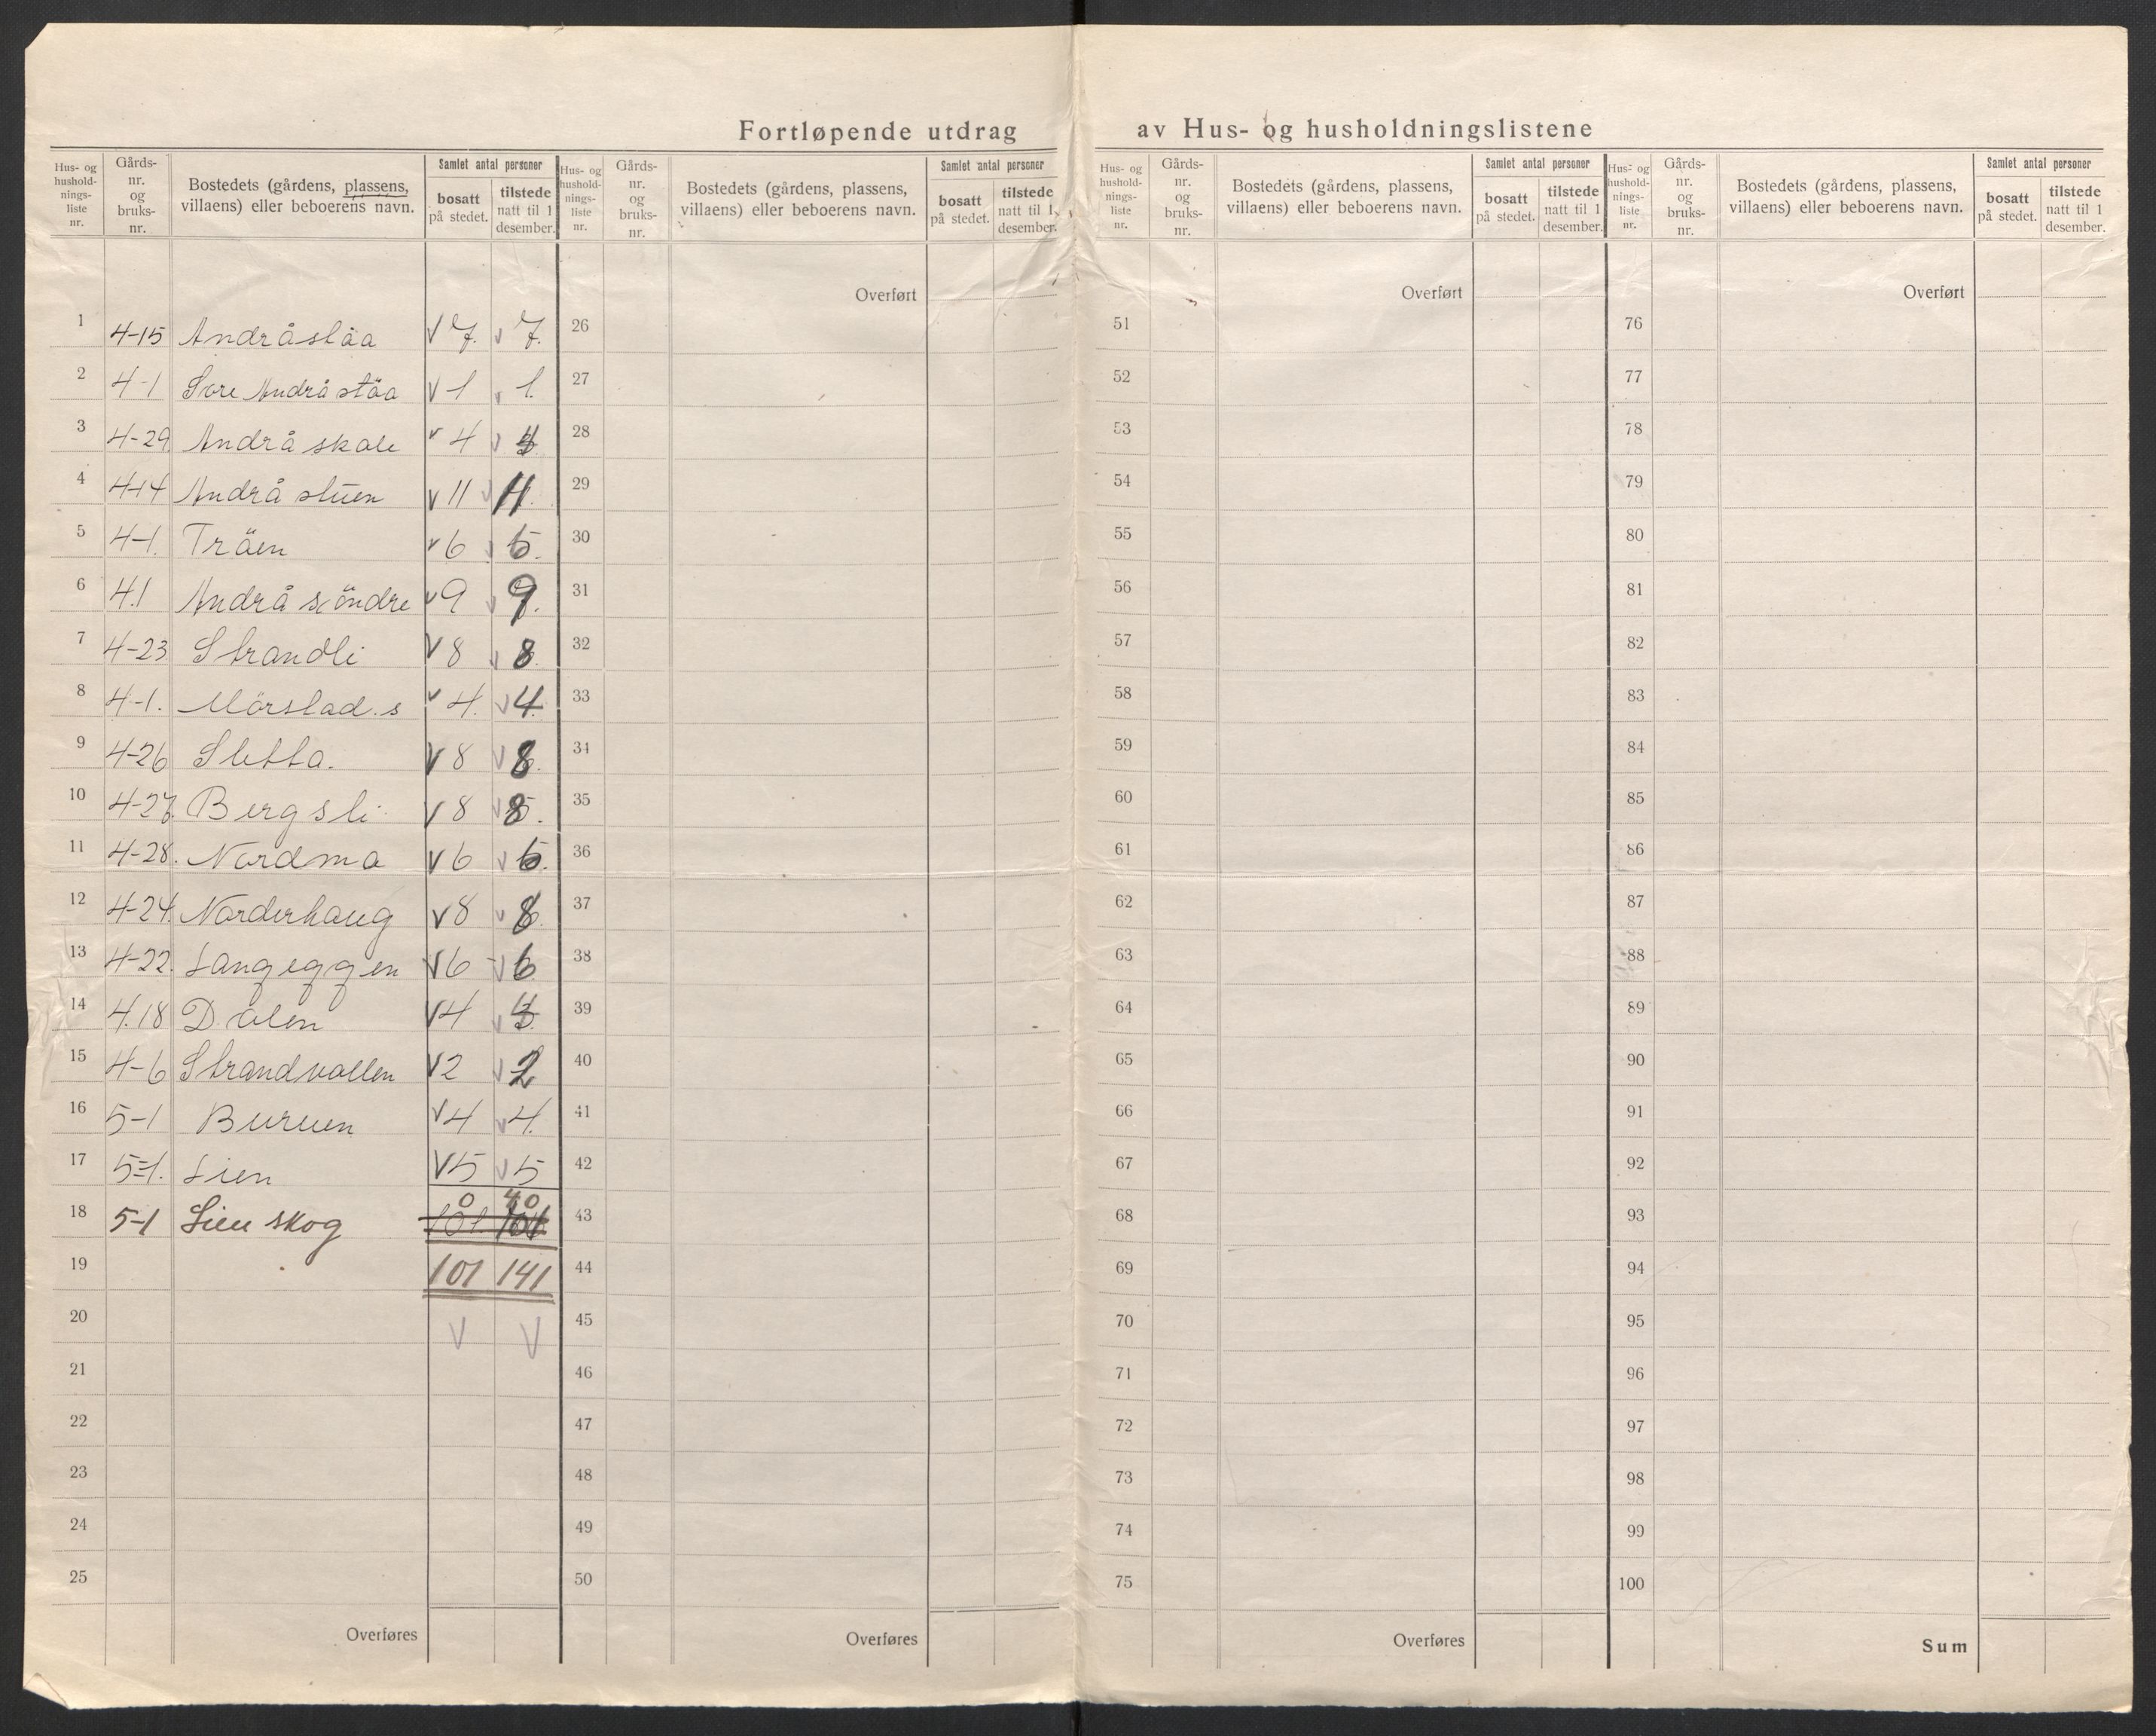 Fortløpende utdrag av Hus- og husholdningslistene
Hus- og hushold-nings-liste nr. | Gårds-nr. og bruks-nr. | Bostedets (gårdens, plassens, villaens) eller beboerens navn. | Samlet antal personer | bosatt på stedet. | tilstede natt til 1 desember.
Hus- og hushold-nings-liste nr. | Gårds-nr. og bruks-nr. | Bostedets (gårdens, plassens, villaens) eller beboerens navn. | Samlet antal personer | bosatt på stedet. | tilstede natt til 1 desember.
Hus- og hushold-nings-liste nr. | Gårds-nr. og bruks-nr. | Bostedets (gårdens, plassens, villaens) eller beboerens navn. | Samlet antal personer | bosatt på stedet. | tilstede natt til 1 desember.
Hus- og hushold-nings-liste nr. | Gårds-nr. og bruks-nr. | Bostedets (gårdens, plassens, villaens) eller beboerens navn. | Samlet antal personer | bosatt på stedet. | tilstede natt til 1 desember.
Overført Overført Overført
1 4-15 Andråslåa 7. 7. 26 51 76
2 4-1 Andråståa 1 1. 27 52 77
3 4-29. Andråskole 4 28 53 78
4 4-14 Andråstuen 11 11. 29 54 79
5 4-1. Tråen 6 30 55 80
6 4.1 Andrå söndre 9 9. 31 56 81
7 4-23 Strandli 8 8. 32 57 82
8 4-1. Mörstad.s 4. 4. 33 58 83
9 4-26 Sletta. 8 8. 34 59 84
10 4-27. Bergsli 8 8. 35 60 85
11 4-28. Nordmo 6 6. 36 61 86
12 4-24. Norderhaug 8 8. 37 62 87
13 4-22. Langeggen 6 6 38 63 88
14 4.18 Dalen 4 39 64 89
15 4-6 Strandvollen 2 2 40 65 90
16 5-1 Buruen 4 4. 41 66 91
17 5-1. Lien 5 5 42 67 92
18 5-1 Lien skog 0 40 43 68 93
19 101 141 44 69 94
20 45 70 95
21 46 71 96
22 47 72 97
23 48 73 98
24 49 74 99
25 50 75 100
Overføres Overføres Overføres Sum